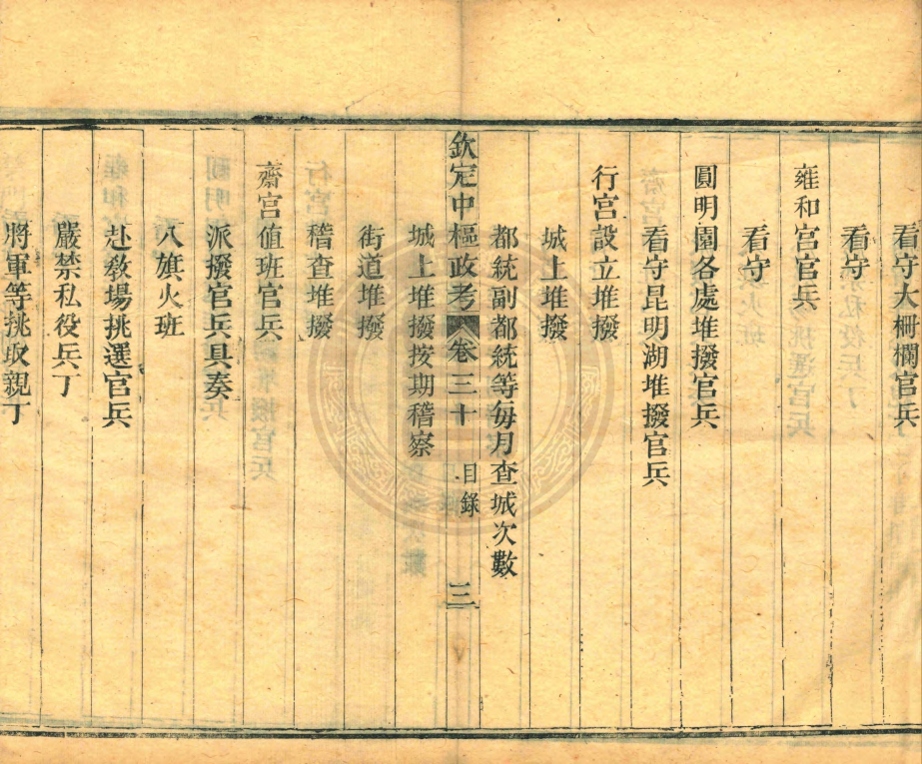 看守大柵欄官兵
看守
雍和宮官兵
看守
圓明園各處堆撥官兵
看守昆明湖堆撥官兵
行宮設立堆撥
城上堆撥
都統副都統等每月查城次數
欽定中樞政考 卷三十 目錄 三
城上堆撥按期稽察
街道堆撥
稽查堆撥
齋宮值班官兵
派撥官兵具奏
八旗火班
赴教場挑選官兵
嚴禁私役兵丁
將軍等挑取親丁